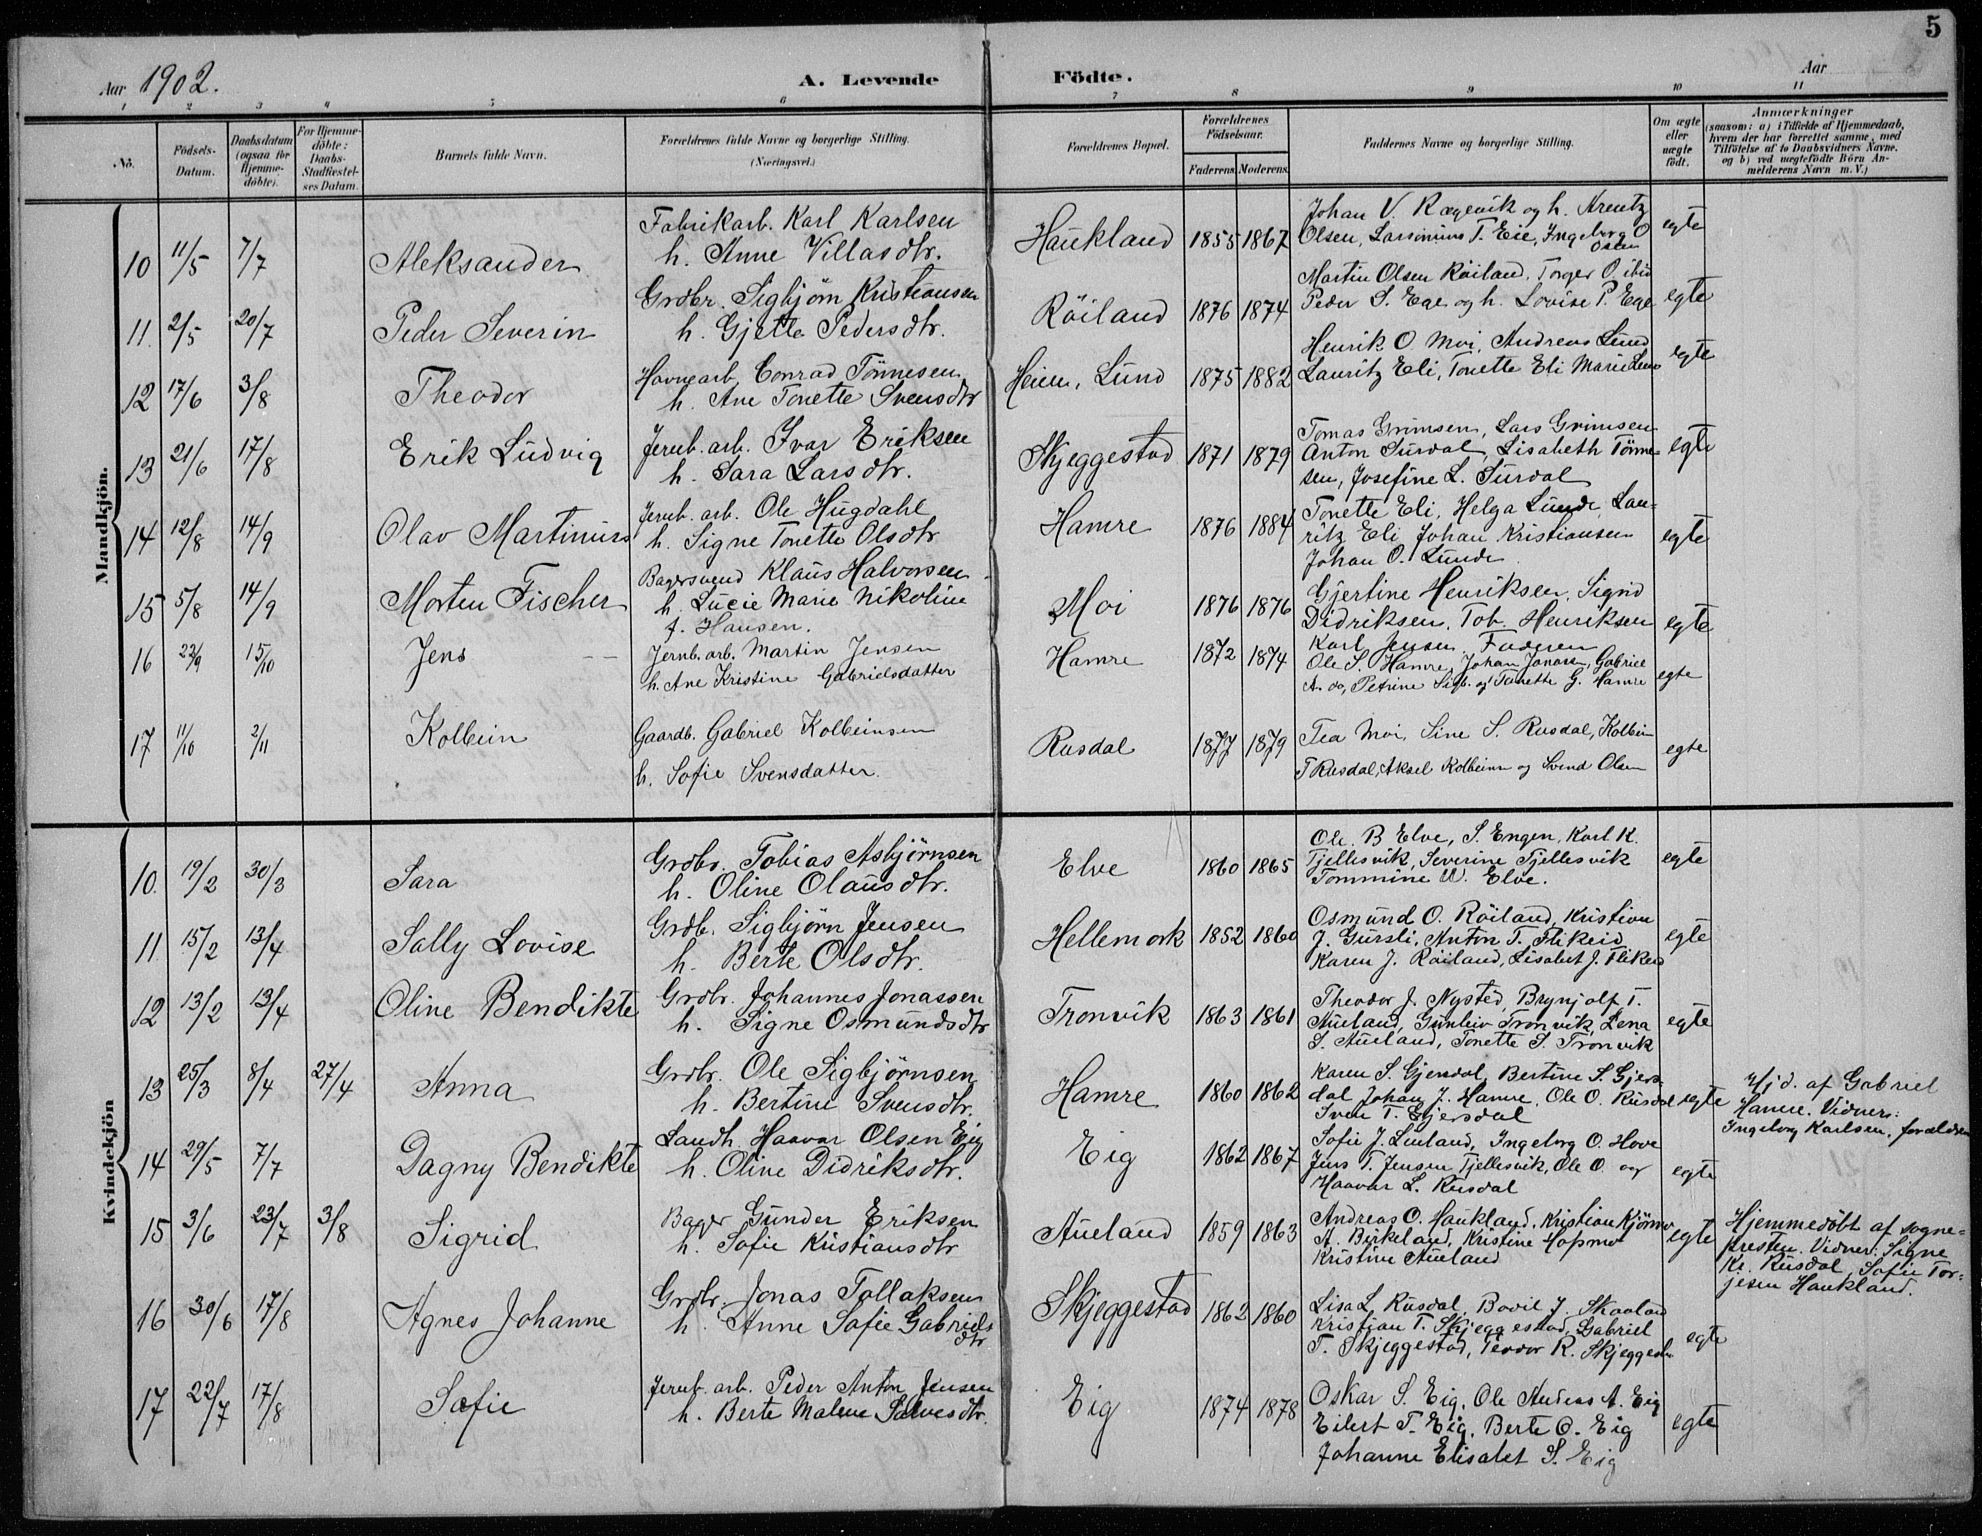 5
Aar 1902. A. Levende Födte. Aar
1 2 3 4 5 6 7 8 9 10 11
No. Födsels-Datum. Daabsdatum (ogsaa for Hjemme-döbte). For Hjemme-döbte: Daabs-Stadfæstel-ses Datum. Barnets fulde Navn. Forældrenes fulde Navne og borgerlige Stilling. (Næringsvei.) Forældrenes Bopæl. Forældrenes Födselsaar. Faderens. Moderens. Faddernes Navne og borgerlige Stilling. Om ægte eller uægte födt. Anmærkninger (saasom: a) i Tilfælde af Hjemmedaab, hvem der har forrettet samme, med Tilföielse af to Daabsvidners Navne. og b) ved uægtefödte Börn An-melderens Navn m. V.)
Mandkjön.
10 11/5 7/7 Aleksander Fabrikarb. Karl Karlsen h. Anne Villasdtr. Haukland 1855 1867 Johan V. Rægevik og h. Arentz Olsen, Larsinius T. Eie, Ingeborg O Osen egte
11. 2/5 20/7 Peder Severin Grdbr. Sigbjörn Kristiansen h. Gjette Pedersdtr. Röiland 1876 1874 Martin Olsen Röiland, Torger O. ibid Peder S. Ege og h. Lovise P. Ege egte
12 17/6 3/8 Theodor Havnearb. Conrad Tönnesen h. Ane Tonette Svensdtr Heien, Lund 1875 1882 Henrik O Moi, Andreas Lund Lauritz Eli, Tonette Eli Marie egte
13 21/6 17/8 Erik Ludvig Jernb. arb. Ivar Eriksen h. Sara Larsdtr. Skjeggestad 1871 1879 Tomas Grimsen, Lars Grimsen Anton Surdal, Lisabeth Tönne- sen, Josefine L. Surdal egte
14 12/8 14/9 Olav Martinius Jernb. arb. Ole Hugdahl h. Signe Tonette Olsdtr Hamre 1876 1884 Tonette Eli, Helga Lunde, Lau- ritz Eli Johan Kristiansen Johan O. Lunde egte
15 5/8 14/9 Morten Fischer Bagersvend Klaus Halvorsen h. Lucie Marie Nikoline f. Hansen. Moi 1876 1876 Gjertine Henriksen, Sigrid Didriksen, Tob. Henriksen Karl Jensen. Faderen egte
16 22/9 15/10 Jens Jernb. arb. Martin Jensen h. Ane Kristine Gabrielsdatter Hamre 1872 1874 Ole S. Hamre, Johan Jonassen, Gabriel A. do, Petrine Sigb. og Tonette G. Hamre egte
17 11/10 2/11 Kolbein Gaardb. Gabriel Kolbeinsen h. Sofie Svensdatter. Rusdal 1877 1879 Tea Moi, Sine S. Rusdal, Kolbein T Rusdal, Aksel Kolbeinsen og Svend Olsen egte
Kvindekjön
10. 19/2 30/3 Sara Grdbr. Tobias Asbjörnsen h. Oline Olausdtr. Elve 1860 1865 Ole B Elve, S. Engen, Karl K. Tjellesvik, Severine Tjellesvik Tommine W. Elve. egte
11. 15/2 13/4 Sally Lovise Grdb. Sigbjörn Jensen h. Berte Olsdtr. Hellemork 1852 1860 Osmund O. Röiland, Kristian J. Gursli, Anton T. Flikeid Karen J. Röiland, Lisabet J. Flikeid egte
12 13/2 13/4 Oline Bendikte Grdbr. Johannes Jonassen h. Signe Osmundsdtr Tronvik 1863 1861 Theodor J. Nysted, Brynjolf T. Aueland, Gunleiv Tronvik, Lena S. Aueland, Tonette S. Tronvik egte
13 25/3 8/4 27/4 Anna Grdbr. Ole Sigbjörnsen h. Bertine Svensdtr. Hamre 1860 1862 Karen S. Gjersdal, Bertine S. Gjers- dal Johan J. Hamre, Ole O. Rusdal Sven T. Gjersdal egte Hjd. af Gabriel Hamre. Vidner: Ingeborg Karlsen, forældrene
14 29/5 7/7 Dagny Bendikte Landh. Haavar Olsen Eig h. Oline Didriksdtr. Eig 1862 1867 Sofie J. Lunland, Ingeborg O. Hove Jens T. Jensen Tjellesvik, Ole O. og Haavar L. Rusdal egte
15 3/6 23/7 3/8 Sigrid Bager Gunder Eriksen h. Sofie Kristiansdtr Aueland 1859 1863 Andreas O. Haukland, Kristian Kjörmo A. Birkeland, Kristine Hopmo Kristine Aueland egte Hjemmedöbt af sogne- presten. Vidner: Signe Kr. Rusdal, Sofie Tor- jesen Haukland.
16 30/6 17/8 Agnes Johanne Grdbr. Jonas Tollaksen h. Anne Sofie Gabriels dtr Skjeggestad 1862 1860 Lisa L Rusdal, Bovil J. Skaaland Kristian T. Skjeggestad, Gabriel T. Skjeggestad, Teodor R. Skjeggestad egte
17 22/7 17/8 Sofie Jernb. arb. Peder Anton Jensen h. Berte Malene Salvesdtr. Eig 1874 1878 Oskar S. Eig, Ole Andreas A. Eig Eilert T. Eig, Berte O. Eig Johanne Elisabet S. Eig egte